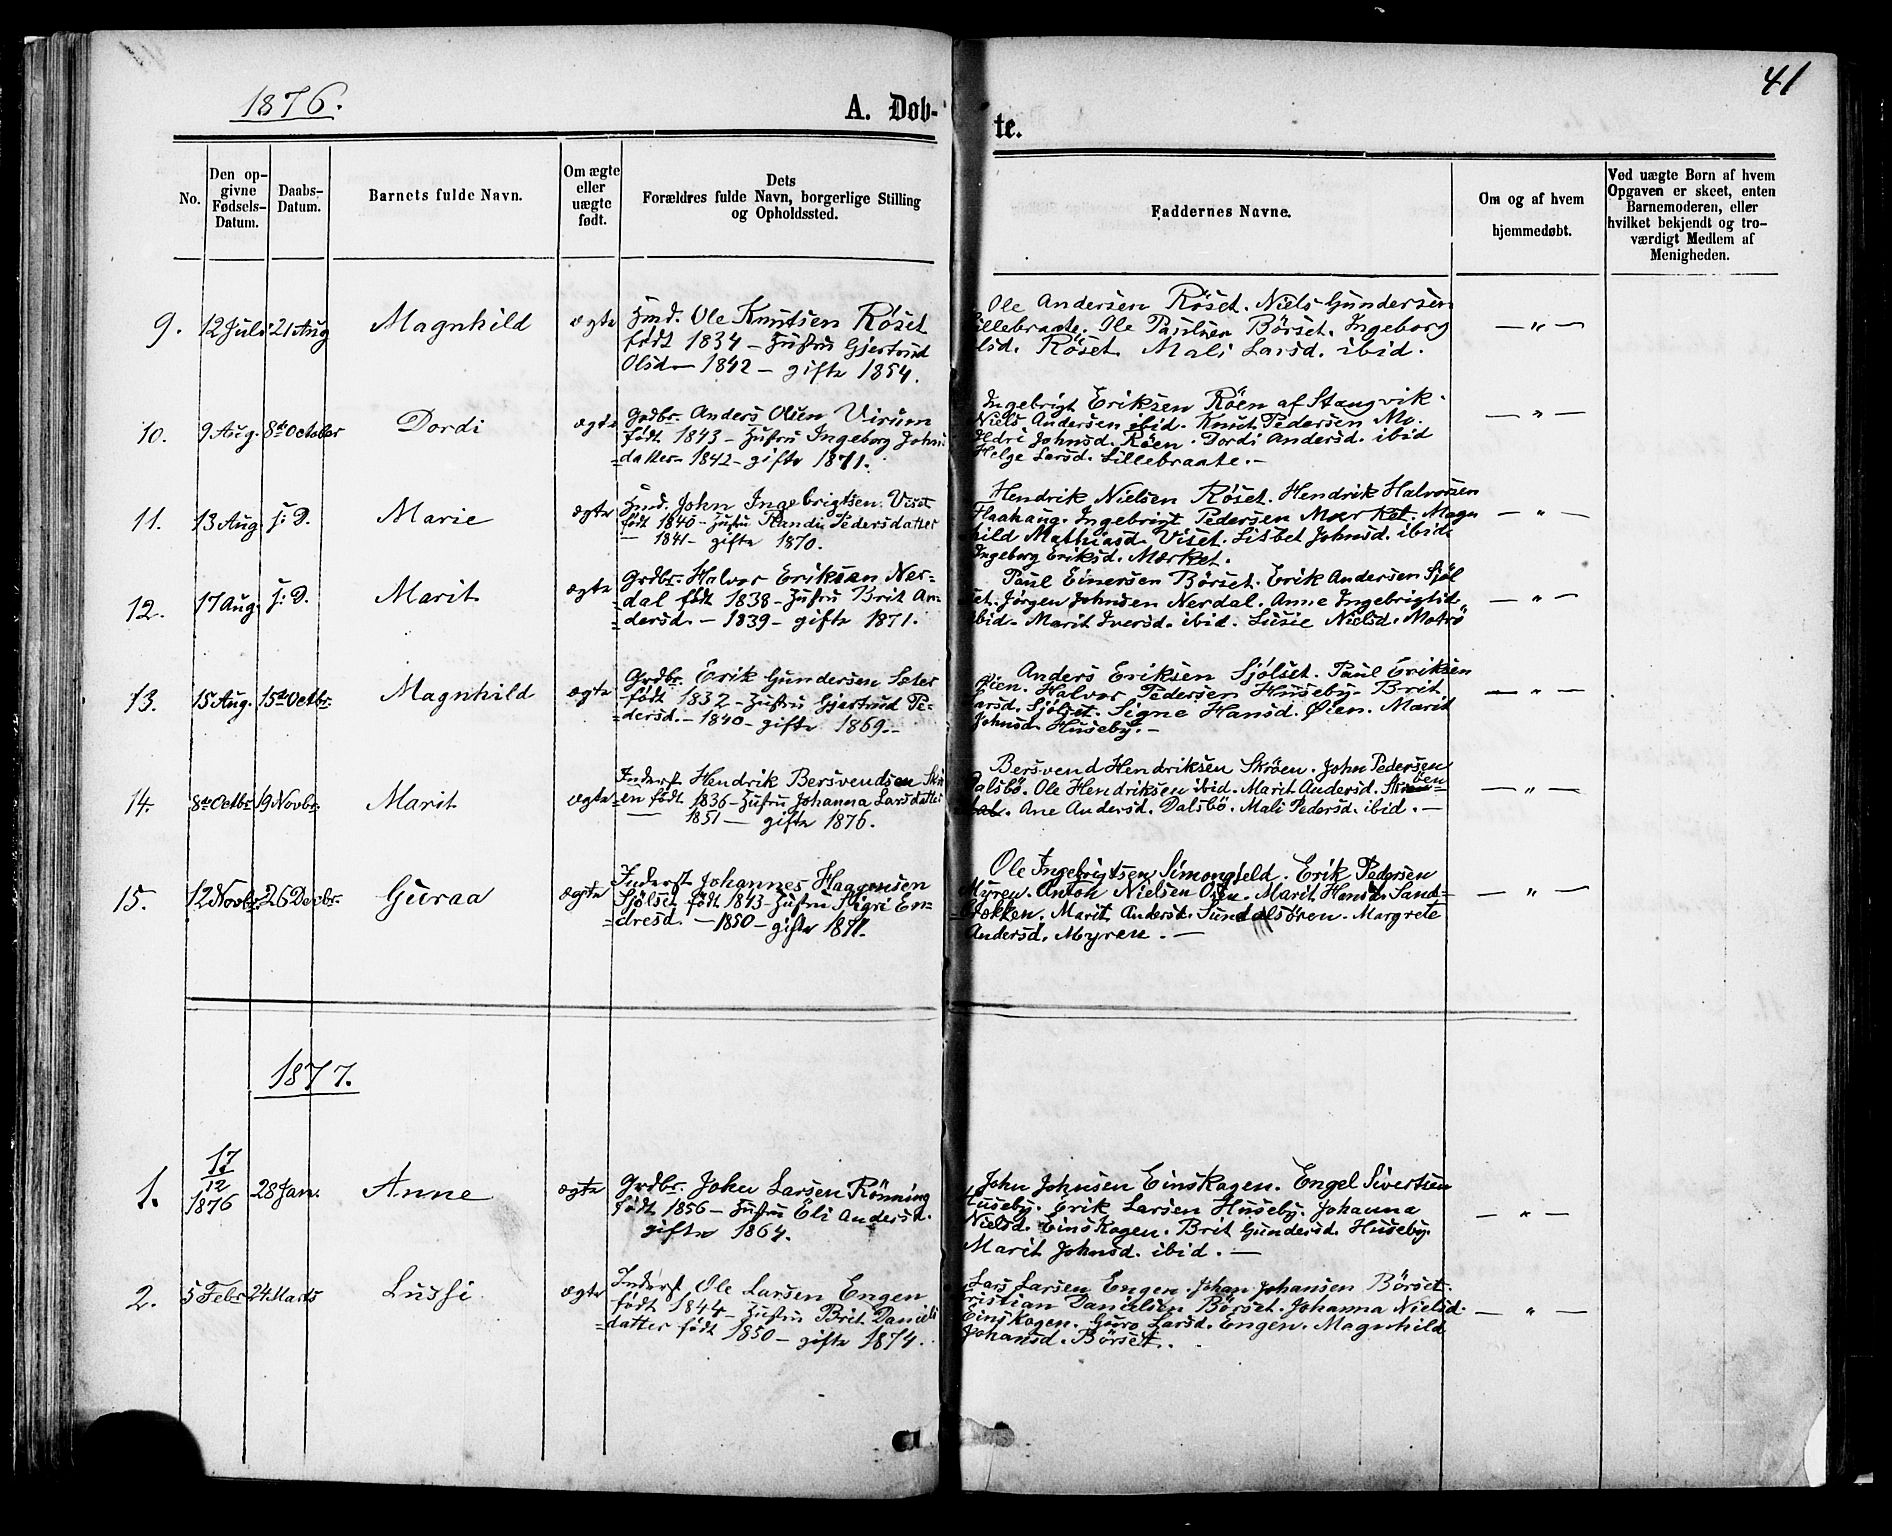 41
1876.
A. Døb-
te.
No.
Den op-
givne
Fødsels-
Datum.
Daabs-
Datum.
Barnets fulde Navn.
Om ægte
eller
uægte
født.
Dets
Forældres fulde Navn, borgerlige Stilling
og Opholdssted.
Faddernes Navne.
Om og af hvem
hjemmedøbt.
Ved uægte Børn af hvem
Opgaven er skeet, enten
Barnemoderen, eller
hvilket bekjendt og tro-
værdigt Medlem af
Menigheden.
9. 12 Juli 21 Aug Magnhild ægte
Hmd. Ole Knutsen Röset
född 1834 – Hustru Gjertrud
Olsd – 1842 – gifte 1854.
Ole Andersen Röset. Niels Gundersen
Lillebraate. Ole Paulsen Börset. Ingeborg
Olsd. Röset. Mali Larsd. ibid.
— " —
10. 9 Aug. 8de October Dordi ægte
Grdbr. Anders Olsen Virum
født 1843 – Hustru Ingeborg Johns
=datter – 1842 – gifte 1871.
Ingebrigt Eriksen Röen af Stangvik.
Niels Andersen ibid. Knut Pedersen Mo.
Johnsd. Röen. Dordi Andersd. ibid
Helge Larsd. Lillebraate. –
— " —
11. 13 Aug. s: D. Marie ægte
Hmd. John Ingebrigtsen Viset
født 1840 – Hustru Randi Pedersdatter
— 1841 – gifte 1870.
Hendrik Nielsen Röset. Hendrik Halvorsen
Haahaug. Ingebrigt Pedersen Mærket. Magn
hild Mathiasd. Viset. Lisbet Johnsd. ibid.
Ingeborg Eriksd. Mærket.
— " —
12. 17 Aug. s: D. Marit ægte
Grdbr. Halvor Eriksen Ner=
=dal født 1838 – Hustru Brit An=
=dersd. – 1839 – gifte 1871.
Paul Einersen Börset. Erik Andersen Sjöl
set. Jörgen Johnsen Nerdal. Anne Ingebrigtsd.
ibid. Marit Iversd. ibid. Lusie Nielsd.
— " —
13. 15 Aug. 15de Octbr. Magnhild ægte
Grdbr. Erik Gundersen Sæter
født 1832 – Hustru Gjertrud Pe=
=dersd. – 1840 – gifte 1869. –
Anders Eriksen Sjölset. Paul Eriksen
Øien. Halvor Pedersen Huseby. Brit
Larsd. Sjölset. Signe Hansd. Øien. Marit
Johnsd. Huseby. –
— " —
14. 8de Octbr. 19 Novbr. Marit ægte
Inderst Hendrik Bersvendsen Skrö
=en født 1836 – Hustru Johanna Larsdatter
— 1851 — gifte 1876.
Bersvend Hendriksen Skröen. John Pedersen
Dalsbö. Ole Hendriksen ibid. Marit Andersd. Skröen=
Ane Andersd. Dalsbö. Mali Pedersd. ibid. —
— " —
15. 12 Novbr. 26 Decbr. Guraa ægte
Inderst Johannes Haagensen
Sjölset født 1843 – Hustru Sigri En=
=dresd. – 1850 – gifte 1871.
Ole Ingebrigtsen Simongjeld. Erik Pedersen
Myren. Anton Nielsen Marit Hansd. Sand=
Marit Andersd. Sundalsören. Margrete
Andersd. Myren. —
— " —
1877.
1. 17/12 1876 28 Jan. Anne ægte
Grdbr. John Larsen Rönning
født 1856 – Hustru Eli Andersd.
gifte 1864.
John Johnsen Einskagen. Engel Sivertsen
Huseby. Erik Larsen Huseby. Johanna
Nielsd. Einskagen. Brit Gundersd. Huseby.
Marit Johnsd. ibid. —
— " —
2. 5 Febr 24 Marts Lussi. ægte
Inderst Ole Larsen Engen
født 1844 – Hustru Brit Daniels
=datter født 1850 – gifte 1874.
Lars Larsen Engen. Johan Johansen Börset.
Kristian Danielsen Börset. Johanna Nielsd.
Einskagen. Guro Larsd. Engen. Magnhild
Johansd. Börset.
— " —